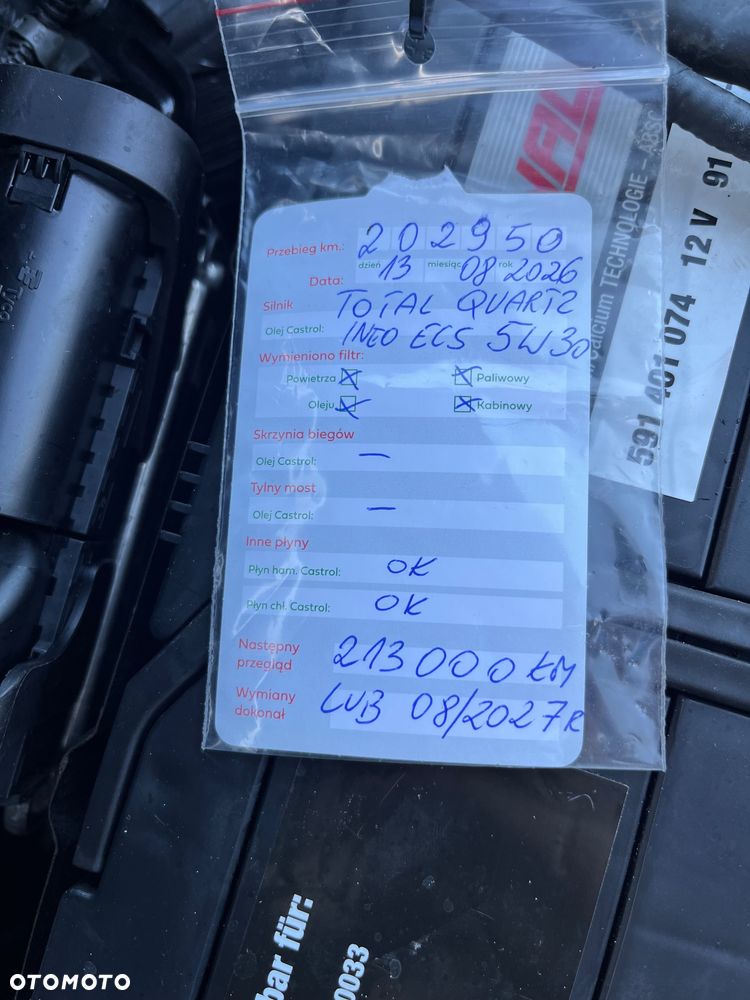 Przebieg km.: 202950
dzień miesiąc rok
Data: 13 08 2026
Silnik TOTAL QUARTZ
Olej Castrol: INEO ECS 5W30
Wymieniono filtr:
Powietrza Paliwowy
Oleju Kabinowy
Skrzynia biegów
Olej Castrol: —
Tylny most
Olej Castrol: —
Inne płyny
Płyn ham. Castrol: OK
Płyn chł. Castrol: OK
Następny przegląd 213 000 km
Wymiany dokonał LUB 08/2027R
Calcium TECHNOLOGIE – ABSC
591 401 074 12 V 91
bar für:
0033
OTOMOTO